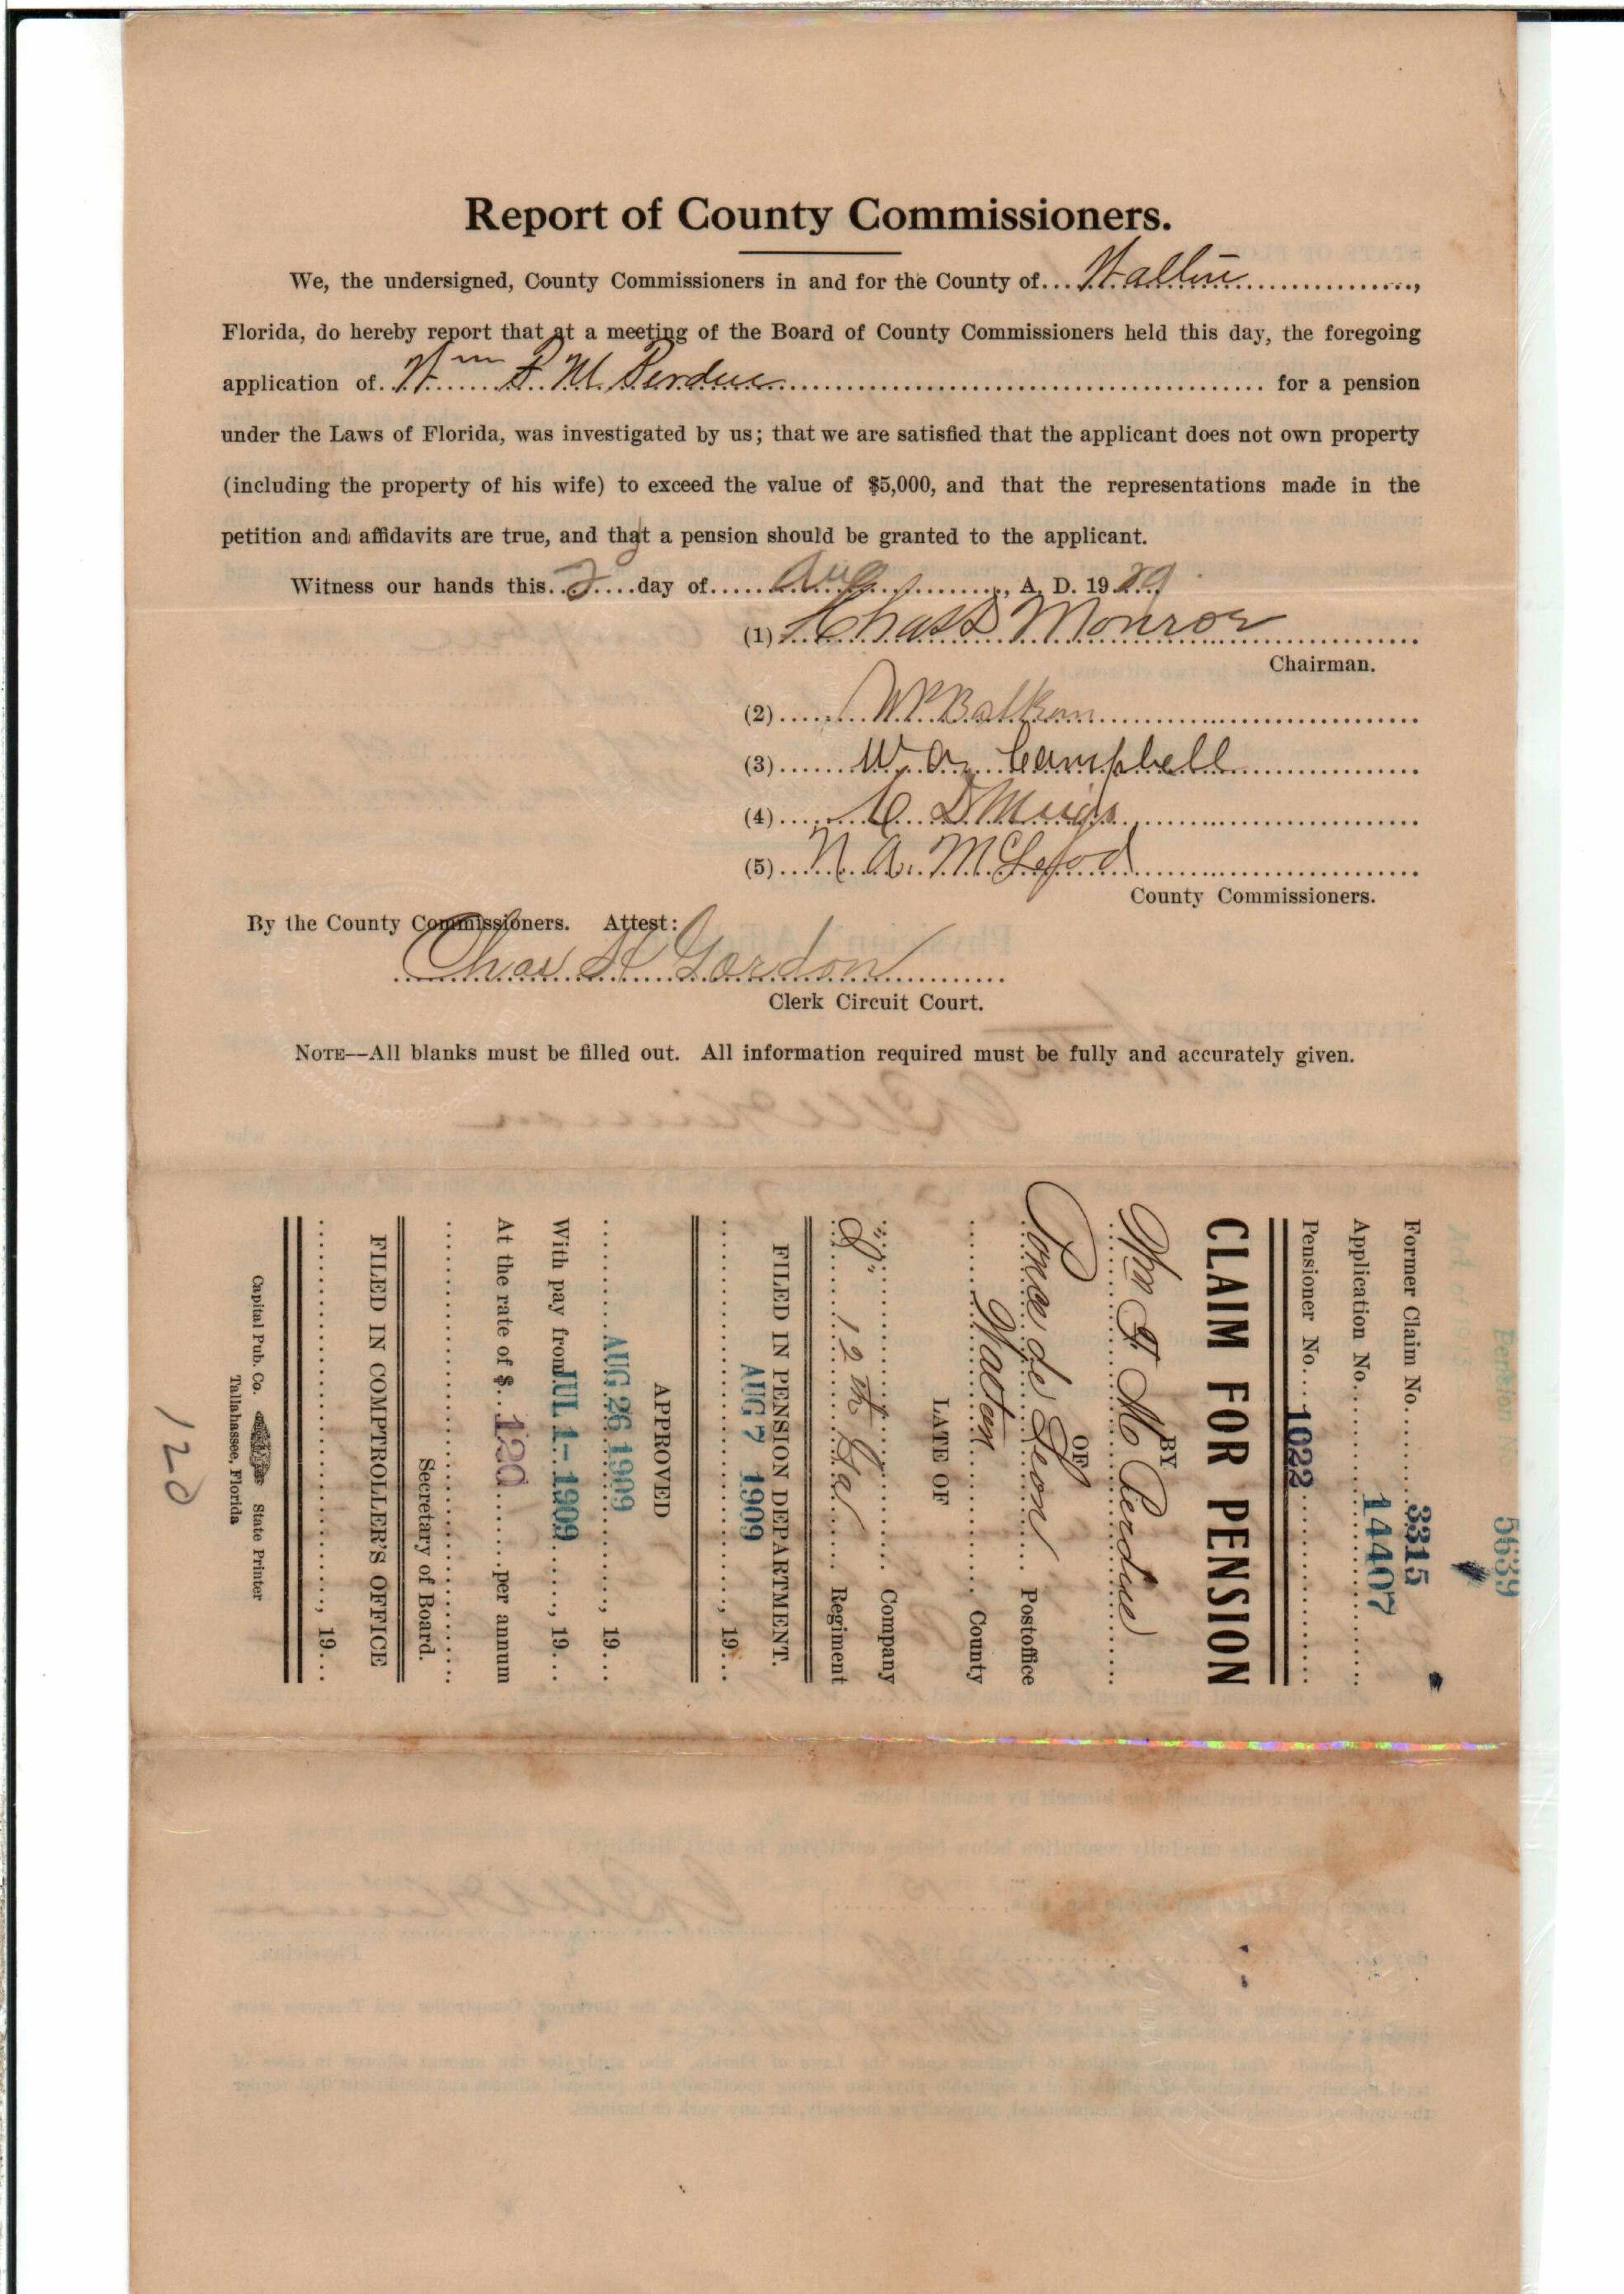 Report of County Commissioners.
We, the undersigned, County Commissioners in and for the County of... Walton ...,
Florida, do hereby report that at a meeting of the Board of County Commissioners held this day, the foregoing
application of. Wm F. M. Perdue ... for a pension
under the Laws of Florida, was investigated by us; that we are satisfied that the applicant does not own property
(including the property of his wife) to exceed the value of $5,000, and that the representations made in the
petition and affidavits are true, and that a pension should be granted to the applicant.
Witness our hands this. 2 ...day of... Aug ..., A. D. 19 09
(1) Chas D Monroe
Chairman.
(2) W P Balkom
(3) W. A. Campbell
(4) C. D Meigs
(5) N. A. McLeod
County Commissioners.
By the County Commissioners. Attest:
Chas H Gordon
Clerk Circuit Court.
NOTE—All blanks must be filled out. All information required must be fully and accurately given.
5639
Former Claim No. 3315
Application No. 14407
Pensioner No. 1022
CLAIM FOR PENSION
BY
Wm F M Perdue
OF
Ponce de Leon Postoffice
Walton County
LATE OF
"I" Company
12th Ga Regiment
FILED IN PENSION DEPARTMENT.
AUG 7 1909 , 19...
APPROVED
AUG 26 1909 , 19...
With pay from JUL 1 - 1909 , 19...
At the rate of $ 120 per annum
Secretary of Board.
FILED IN COMPTROLLER'S OFFICE
, 19...
Capital Pub. Co. State Printer
Tallahassee, Florida
120